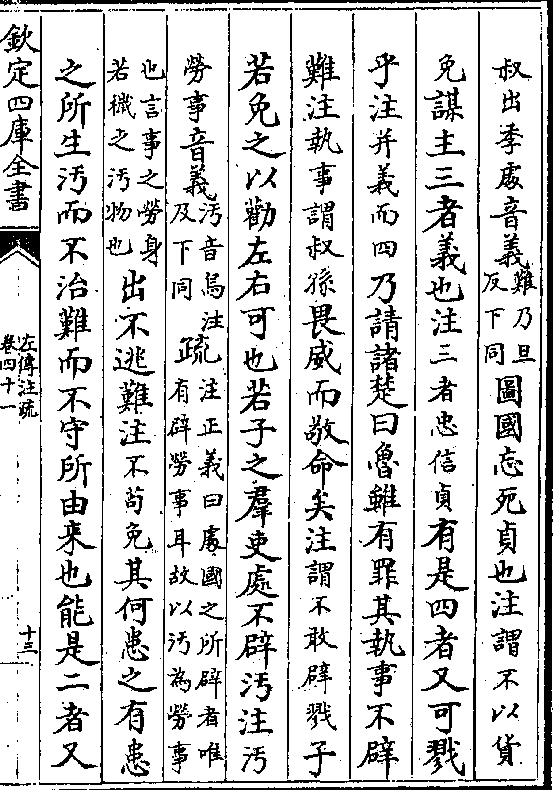 叔出季處音義難乃旦反下同圖國忘死貞也注謂不以貨
免謀主三者義也注三者忠信貞有是四者又可戮
乎注并義而四乃請諸楚曰魯雖有罪其執事不辟
難注執事謂叔孫畏威而敬命矣注謂不敢辟戮子
若免之以勸左右可也若子之羣吏處不辟污注污
勞事音義污音烏注及下同疏注正義曰處國之所辟者唯有辟勞事耳故以污為勞事
也言事之勞身若穢之污物也出不逃難注不苟免其何患之有患
之所生污而不治難而不守所由來也能是二者又
欽定四庫全書
左傳注疏
卷四十一
十三